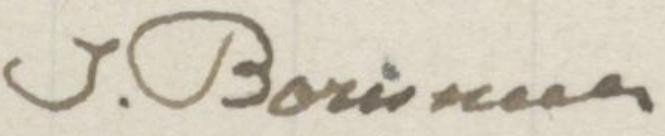 J. Borisman